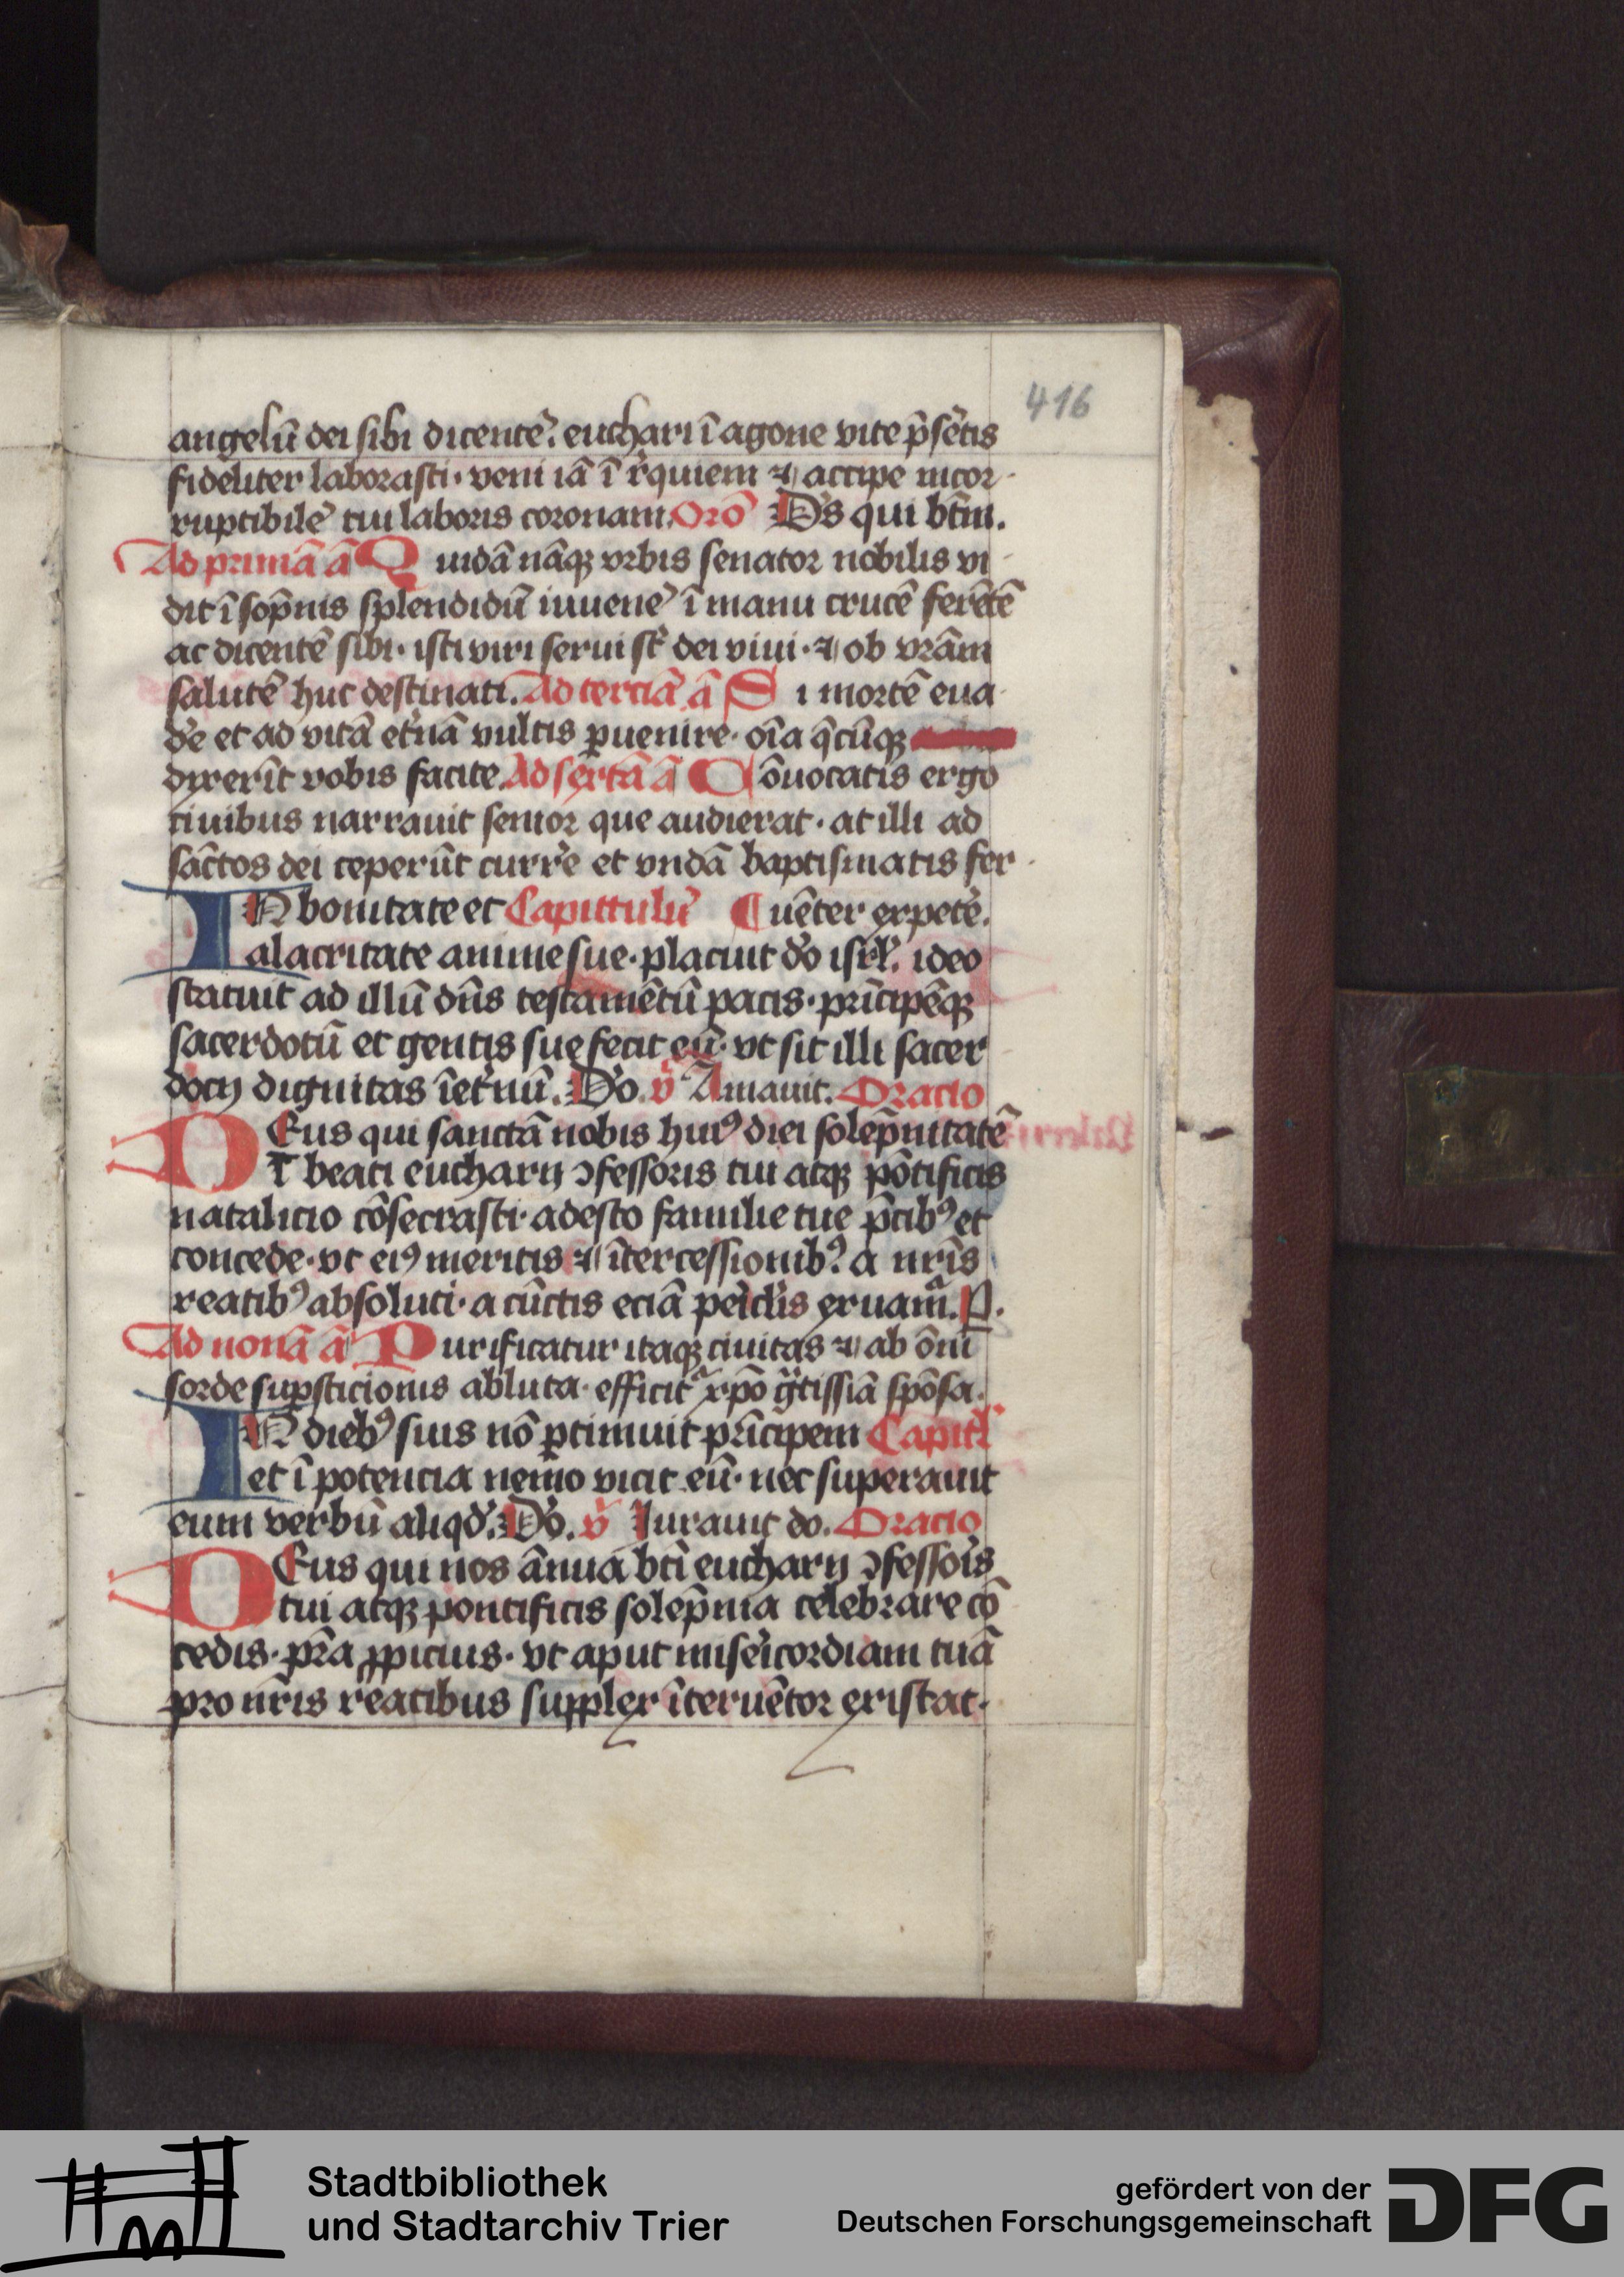 416
angelū dei sibi dicentē. euchari ī agone vite p̄sētis
fideliter laborasti · veni iā ī r̓quiem ⁊ accipe incor-
ruptibilē tui laboris coronam. Orō Ds̄ qui btm̄.
Ad primā ā Quidā nāqꝫ vrbis senator nobilis vi-
dit ī sop̄nis splendidū iuuenē ī manu crucē ferētē
ac dicentē sibi · isti viri serui st̄ dei viui · ⁊ ob vrām
salutē huc destinati. Ad terciā ā Si mortē eua-
d̓e et ad vitā et̓nā vultis ꝑuenire · oīa q̄cūqꝫ
dixerīt vobis facite. Ad sextā ā Cōuocatis ergo
ciuibus narrauit senior que audierat · at illi ad
sāctos dei ceperūt curr̓e et vndā baptismatis fer-
IN bonitate et Capittulū ¶ uēter expetē.
alacritate anime sue · placuit d̓o isrl̓. ideo
statuit ad illū dn̄s testamētū pacis · prīcipēqꝫ
sacerdotū et gentis sue fecit eū · vt sit illi sacer-
docij dignitas īet̓nū. D̓o. v̄ Amauit. Oracio
DEus qui sanctā nobis huiꝰ diei solēp̄nitatē
ī beati eucharij ɔfessoris tui atqꝫ pōtificis
natalicio cōsecrasti · adesto familie tue p̄cibꝰ et
concede · vt eiꝰ meritis ⁊ ītercessionibꝰ. a nr̄is
reatibꝰ absoluti · a cūctis eciā pericl̓is exuamr̄. P.
Ad nonā ā Purificatur itaqꝫ ciuitas ⁊ ab ōni
sorde suꝑsticionis abluta · efficit̓ xp̄o gͣtissīa spōsa.
IN diebꝰ suis nō ꝑtimuit prīcipem Capitl̓
et ī potencia nemo vicit eū · nec superauit
eum verbū aliqd̓. D̓o. v̄ Iurauit do. Oracio
DEus qui nos ānua bti̅ eucharij ɔfessor̓is
tui atqꝫ pontificis solēp̄nia celebrare cō-
cedis · pr̄a ꝓpicius · vt aput miser̓icordiam tuā
pro nr̄is reatibus supplex īteruētor existat.
Stadtbibliothek
und Stadtarchiv Trier
gefördert von der
Deutschen Forschungsgemeinschaft
DFG